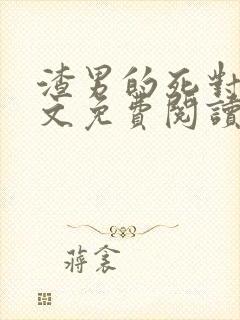 渣男的死對
文免費閱讀
蔣衾